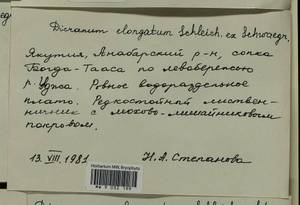 Dicranum elongatum Schleich. ex Schwaegr.
Якутия, Анабарский р-н, сопка
Таага по левобережью
р. Уджа. Ровное водораздельное
плато. Редкостойный листвен-
ничник с мохово-лишайниковым
покровом.
13.VIII.1981 Н.А. Степанова
Herbarium MW, Bryophyta